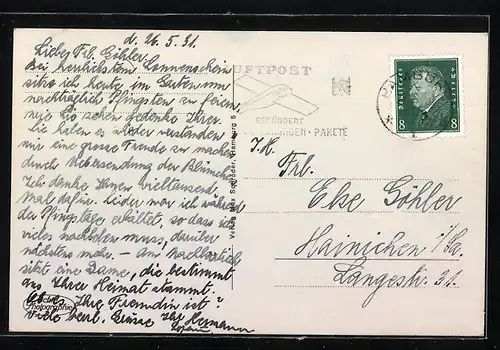 d. 26.5.31.
Liebe Frl. Göhler
Bei herrlichstem Sonnenschein
sitze ich heute im Garten um
nachträglich Pfingsten zu feiern
gedenke Ihrer.
Sie haben es wieder verstanden
mir eine grosse Freude zu machen
durch Uebersendung der Blümchen
Ich danke Ihnen vieltausend
Mal dafür. Leider war ich während
der Pfingsttage erkältet, so dass ich
vieles nachholen muss, darüber
nächstens mehr. - Am Nachbartisch
sitzt eine Dame, die bestimmt
aus Ihrer Heimat stammt.
Ihre Freundin ist?
Viele herzl. Grüsse Ihr Hermann
Photographie
Verlag Max Schröder, Hamburg 5
LUFTPOST
BEFÖRDERT
SENDUNGEN · PAKETE
Deutsches Reich
8 8
Frl.
Else Göhler
Hainichen i/Sa.
Langestr. 31.